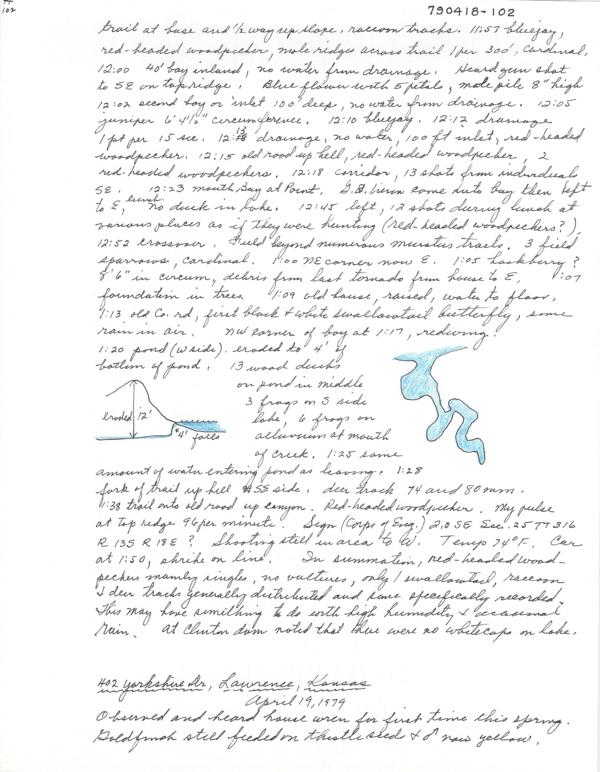 790418-102
102
trail at base and ½ way up slope, raccoon tracks. 11:57 bluejay,
red-headed woodpecker, mole ridges across trail 1 per 300', cardinal.
12:00 40' bay inland, no water from drainage. Heard gun shot
to SE on top ridge. Blue flower with 5 petals, mole pile 8" high
12:02 second bay or inlet 100' deep, no water from drainage. 12:05
juniper 6' 4½" circumference. 12:10 bluejay. 12:12 drainage
1 pt per 15 sec. 12:13 drainage, no water, 100 ft inlet, red-headed
woodpecker. 12:15 old road up hill, red-headed woodpecker, 2
red-headed woodpeckers. 12:18 corridor, 13 shots from individuals
SE. 12:23 mouth Bay at Point. G.B. Heron came into bay then left
to E, lunch. No duck in lake. 12:45 left, 12 shots during lunch at
various places as if they were hunting (red-headed woodpeckers?).
12:52 crossover. Field beyond numerous Microtus trails. 3 field
sparrows, cardinal. 1:00 NE corner now E. 1:05 hackberry?
8' 6" in circum, debris from last tornado from house to E. 1:07
foundation in trees. 1:09 old house, raised, water to floor.
1:13 old Co. rd, first black & white swallowtail butterfly, some
rain in air. NW corner of bay at 1:17, redwing.
1:20 pond (W side). eroded to 4' of
bottom of pond. 13 wood ducks
on pond in middle
3 frogs on S side
lake, 6 frogs on
alluvium at mouth
of creek. 1:25 same
eroded 12'
4' falls
amount of water entering pond as leaving. 1:28
fork of trail up hill SE side. deer track 74 and 80 mm.
1:38 trail onto old road up canyon. Red-headed woodpecker. My pulse
at top ridge 96 per minute. Sign (Corps of Eng.) 2.0 SE Sec. 25 T7 316
R 13S R 18 E? Shooting still in area to W. Temp 74°F. Car
at 1:50, shrike on line. In summation, red-headed wood-
peckers mainly singles, no vultures, only 1 swallowtail, raccoon
& deer tracks generally distributed and some specifically recorded.
This may have something to do with high humidity & occasional
rain. At Clinton dam noted that there were no whitecaps on lake.
402 Yorkshire Dr., Lawrence, Kansas
April 19, 1979
Observed and heard house wren for first time this spring.
Goldfinch still feeded on thistle seed & ♂ now yellow.